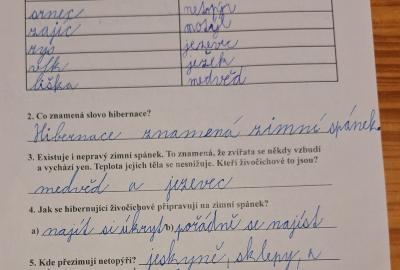 srnec netopýr
zajíc motýl
rys jezevec
vlk ježek
liška medvěd
2. Co znamená slovo hibernace?
Hibernace znamená zimní spánek.
3. Existuje i nepravý zimní spánek. To znamená, že zvířata se někdy vzbudí
a vychází ven. Teplota jejich těla se nesnižuje. Kteří živočichové to jsou?
medvěd a jezevec
4. Jak se hibernující živočichové připravují na zimní spánek?
a) najít si úkryt b) pořádně se najíst
5. Kde přezimují netopýři? jeskyně, sklepy, a